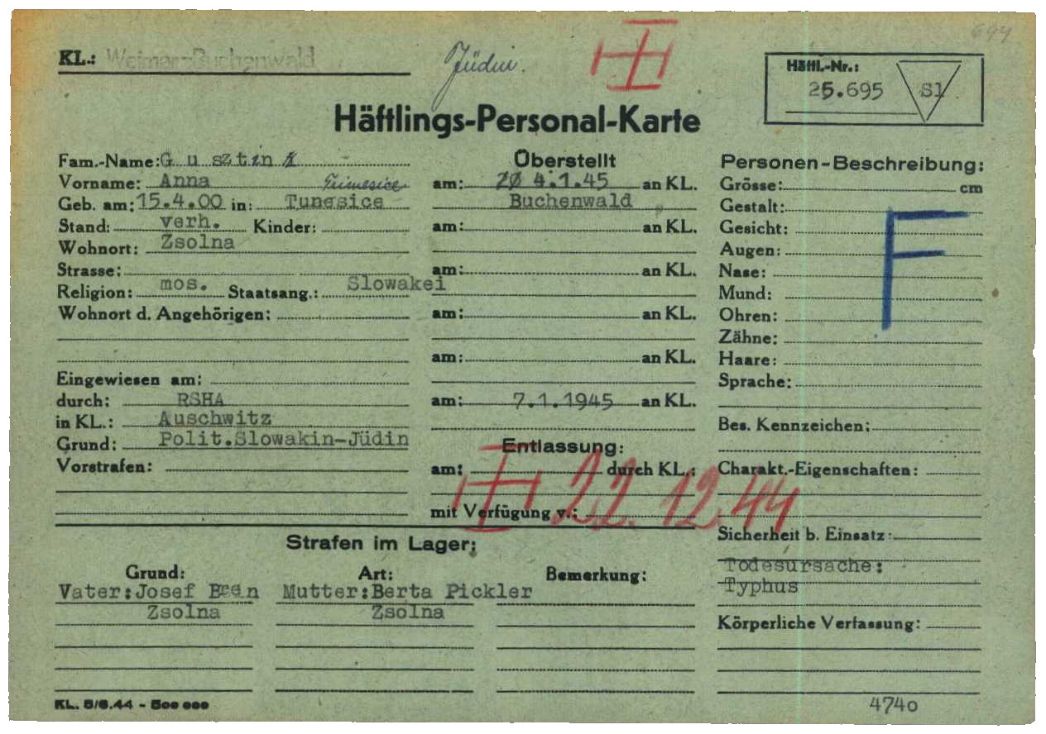 694
KL.: Weimar-Buchenwald
Jüdin.
Häftl.-Nr.:
25.695 Sl
Häftlings-Personal-Karte
Fam.-Name: Gusztin
Vorname: Anna
Geb. am: 15.4.00 in: Tunesice
Stand: verh. Kinder:
Wohnort: Zsolna
Strasse:
Religion: mos. Staatsang.: Slowakei
Wohnort d. Angehörigen:
Eingewiesen am:
durch: RSHA
in KL.: Auschwitz
Grund: Polit.Slowakin-Jüdin
Vorstrafen:
Überstellt
am: 4.1.45 an KL.
Buchenwald
am: an KL.
am: an KL.
am: an KL.
am: an KL.
am: 7.1.1945 an KL.
Entlassung:
am: durch KL.:
22.12.44
mit Verfügung v.:
Personen-Beschreibung:
Grösse: cm
Gestalt:
Gesicht:
Augen:
Nase:
Mund:
Ohren:
Zähne:
Haare:
Sprache:
F
Bes. Kennzeichen:
Charakt.-Eigenschaften:
Sicherheit b. Einsatz:
Todesursache:
Typhus
Körperliche Verfassung:
Strafen im Lager:
Grund: Art: Bemerkung:
Vater:Josef Mutter:Berta Pickler
Zsolna Zsolna
KL. 5/6.44 - 500 000
4740